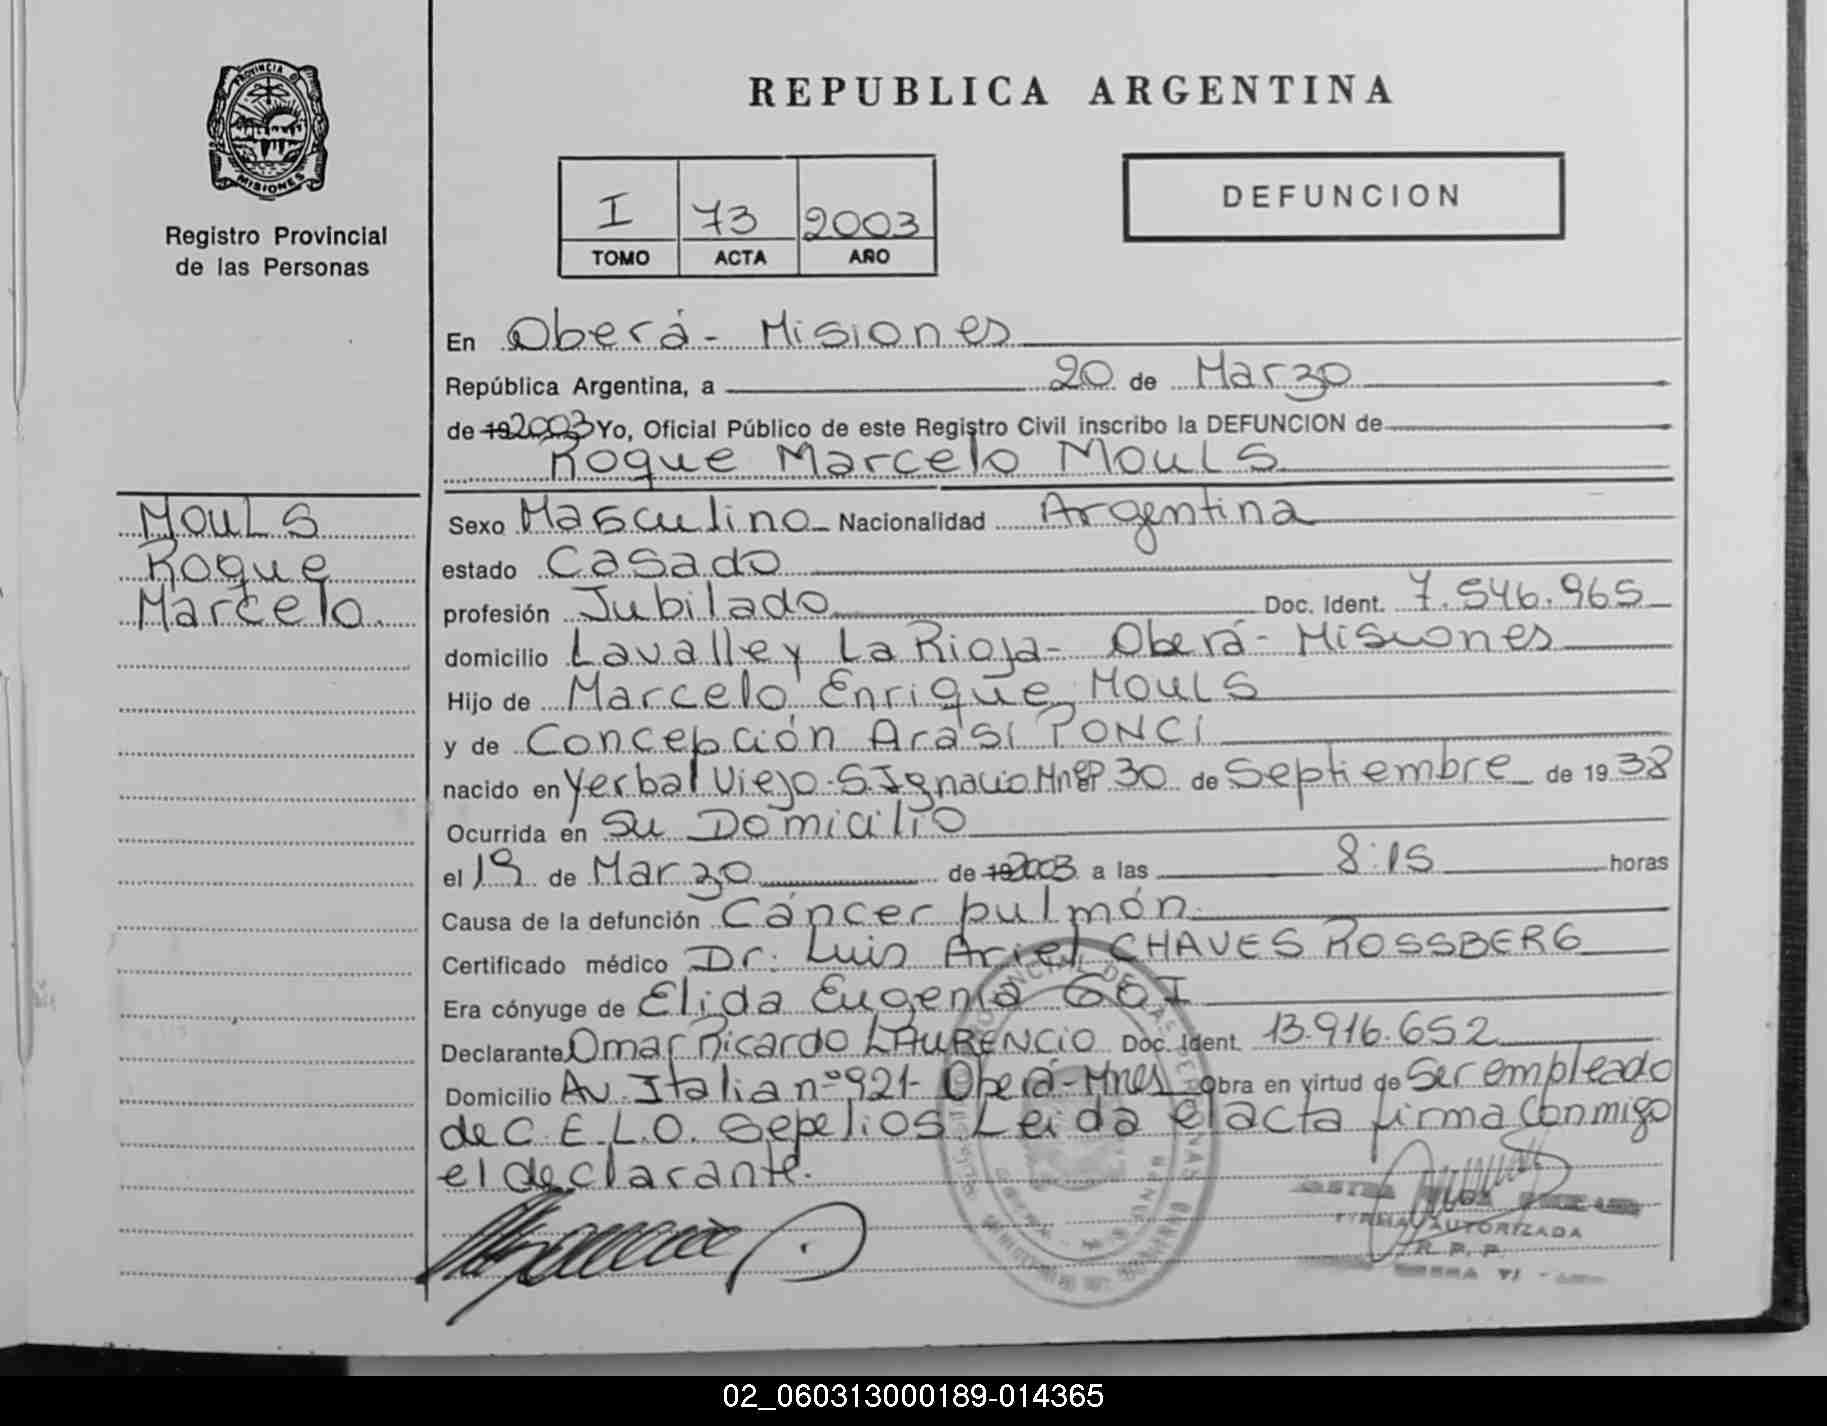 PROVINCIA D
MISIONES
Registro Provincial
de las Personas
REPUBLICA ARGENTINA
I 73 2003
TOMO ACTA AÑO
DEFUNCION
En Oberá - Misiones
República Argentina, a 20 de Marzo
de 19 2003 Yo, Oficial Público de este Registro Civil inscribo la DEFUNCION de
Roque Marcelo MoulS
MoulS
Roque
Marcelo.
Sexo Masculino Nacionalidad Argentina
estado Casado
profesión Jubilado Doc. Ident. 7.546.965
domicilio Lavalle y La Rioja - Oberá - Misiones
Hijo de Marcelo Enrique MoulS
y de Concepción Arasi PONCI
nacido en Yerbal Viejo - S. Ignacio Mnes 30 de Septiembre de 19 38
Ocurrida en Su Domicilio
el 19 de Marzo de 19 2003 a las 8:15 horas
Causa de la defunción Cáncer pulmón.
Certificado médico Dr. Luis Ariel CHAVES ROSSBERG
Era cónyuge de Elida Eugenia GOI
Declarante Omar Ricardo LAURENCIO Doc. Ident. 13.916.652
Domicilio Av. Italia nº 921 - Oberá - Mnes Obra en virtud de Ser empleado
de C.E.L.O. Sepelios. Leida el acta firma Conmigo
el declarante.
FIRMA AUTORIZADA
R. P. P.
02_060313000189-014365